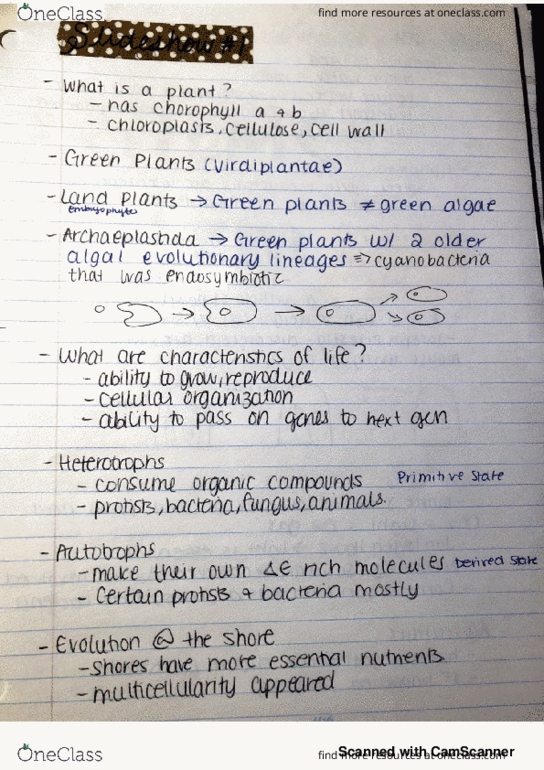 OneClass
find more resources at oneclass.com
Slideshow #1
- What is a plant?
- has chorophyll a + b
- chloroplasts, cellulose, cell wall
- Green Plants (Virdiplantae)
- Land Plants → Green plants ≠ green algae
embryophyte
- Archaeplastida → Green plants w/ 2 older
algal evolutionary lineages ⇒ cyanobacteria
that was endosymbiotic
- What are characteristics of life?
- ability to grow, reproduce
- cellular organization
- ability to pass on genes to next gen
- Heterotrophs
- consume organic compounds Primitive State
- protists, bacteria, fungus, animals.
- Autotrophs
- make their own ΔE rich molecules Derived State
- Certain protists + bacteria mostly
- Evolution @ the shore
- shores have more essential nutrients
- multicellularity appeared
OneClass
find more resources at oneclass.com
Scanned with CamScanner